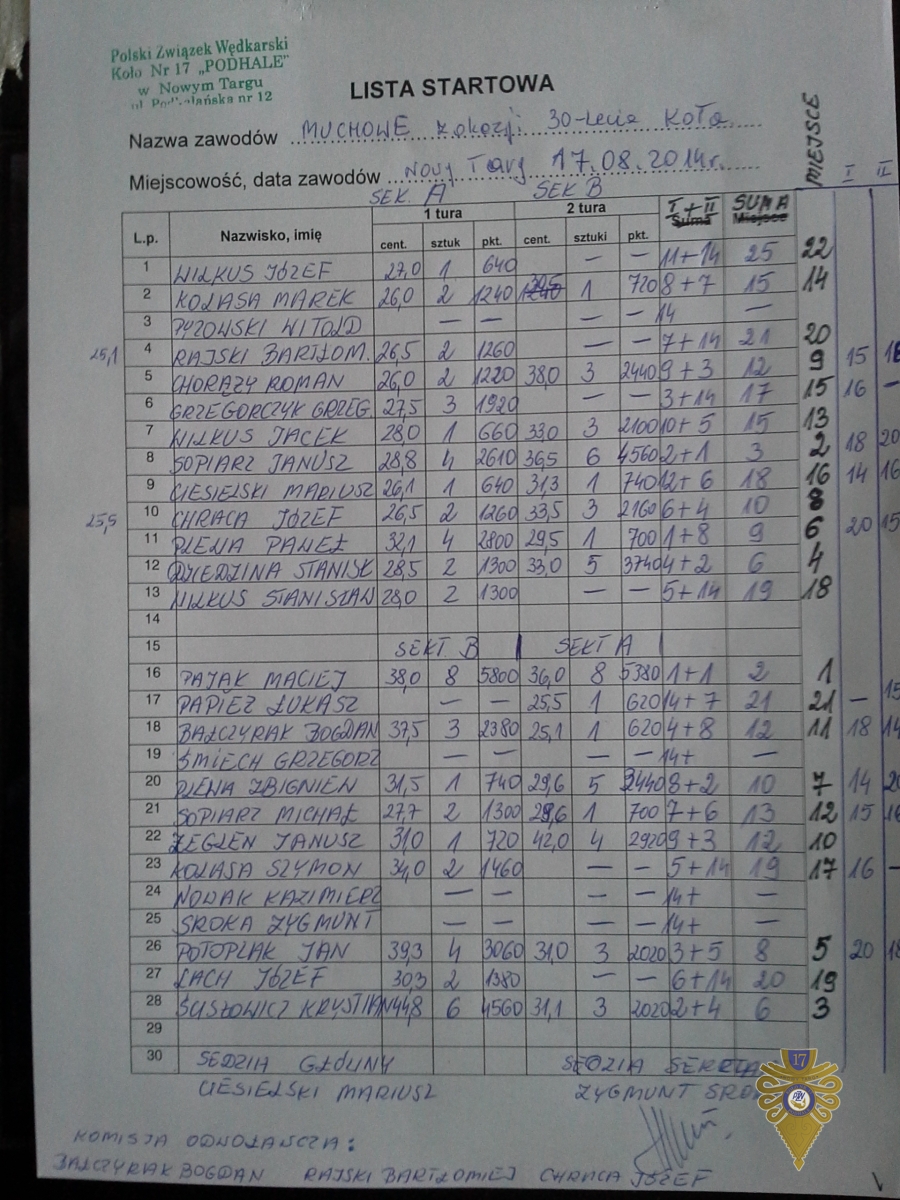 Polski Związek Wędkarski
Koło Nr 17 „PODHALE”
w Nowym Targu
ul. Podhalańska nr 12
LISTA STARTOWA
MIEJSCE
Nazwa zawodów MUCHOWE z okazji 30-lecia Koła
Miejscowość, data zawodów Nowy Targ 17.08.2014r.
SEK. A SEK B I II
L.p. Nazwisko, imię 1 tura 2 tura I + II Suma SUMA Miejsce
cent. sztuk pkt. cent. sztuki pkt.
1 WILKUS JÓZEF 27,0 1 640 — — 11+14 25 22
2 KOLASA MAREK 26,0 2 1240 1 720 8+7 15 14
3 PYZOWSKI WITOLD — — — — 14 —
25,1 4 RAJSKI BARTŁOM. 26,5 2 1260 — — 7+14 21 20 15 18
5 CHORĄZY ROMAN 26,0 2 1220 38,0 3 2440 9+3 12 9 16 —
6 GRZEGORCZYK GRZEG. 27,5 3 1920 — — 3+14 17 15
7 WILKUS JACEK 28,0 1 660 33,0 3 2100 10+5 15 13
8 SOPIARZ JANUSZ 28,8 4 2610 36,5 6 4560 2+1 3 2 18 20
9 CIESIELSKI MARIUSZ 26,1 1 640 31,3 1 740 12+6 18 16 14 16
25,5 10 CHRACA JÓZEF 26,5 2 1260 33,5 3 2160 6+4 10 8
11 PLEWA PAWEŁ 32,1 4 2800 29,5 1 700 1+8 9 6 20 15
12 DZIEDZINA STANISŁ 28,5 2 1300 33,0 5 3740 4+2 6 4
13 WILKUS STANISŁAW 28,0 2 1300 — — 5+14 19 18
14
15 SEKT B SEKT A
16 PAJĄK MACIEJ 38,0 8 5800 36,0 8 5380 1+1 2 1
17 PAPIEŻ ŁUKASZ — — 25,5 1 620 14+7 21 21 — 15
18 BAŁCZYRAK BOGDAN 37,5 3 2380 25,1 1 620 4+8 12 11 18 14
19 ŚMIECH GRZEGORZ — — — — 14+ —
20 PLEWA ZBIGNIEW 31,5 1 740 29,6 5 3440 8+2 10 7 14 20
21 SOPIARZ MICHAŁ 27,7 2 1300 29,6 1 700 7+6 13 12 15 16
22 ŻEGLEŃ JANUSZ 31,0 1 720 42,0 4 2920 9+3 12 10
23 KOLASA SZYMON 34,0 2 1460 — — 5+14 19 17 16 —
24 NOWAK KAZIMIERZ — — 14+ —
25 SROKA ZYGMUNT — — — — 14+ —
26 POTOPLAK JAN 39,3 4 3060 31,0 3 2020 3+5 8 5 20 18
27 LACH JÓZEF 30,3 2 1380 — — 6+14 20 19
28 SUSŁOWICZ KRYSTIAN 44,8 6 4560 31,1 3 2020 2+4 6 3
29
30
SĘDZIA GŁÓWNY SĘDZIA
CIESIELSKI MARIUSZ ZYGMUNT
17
PZW
KOMISJA ODWOŁAWCZA:
BAŁCZYRAK BOGDAN RAJSKI BARTŁOMIEJ CHRACA JÓZEF